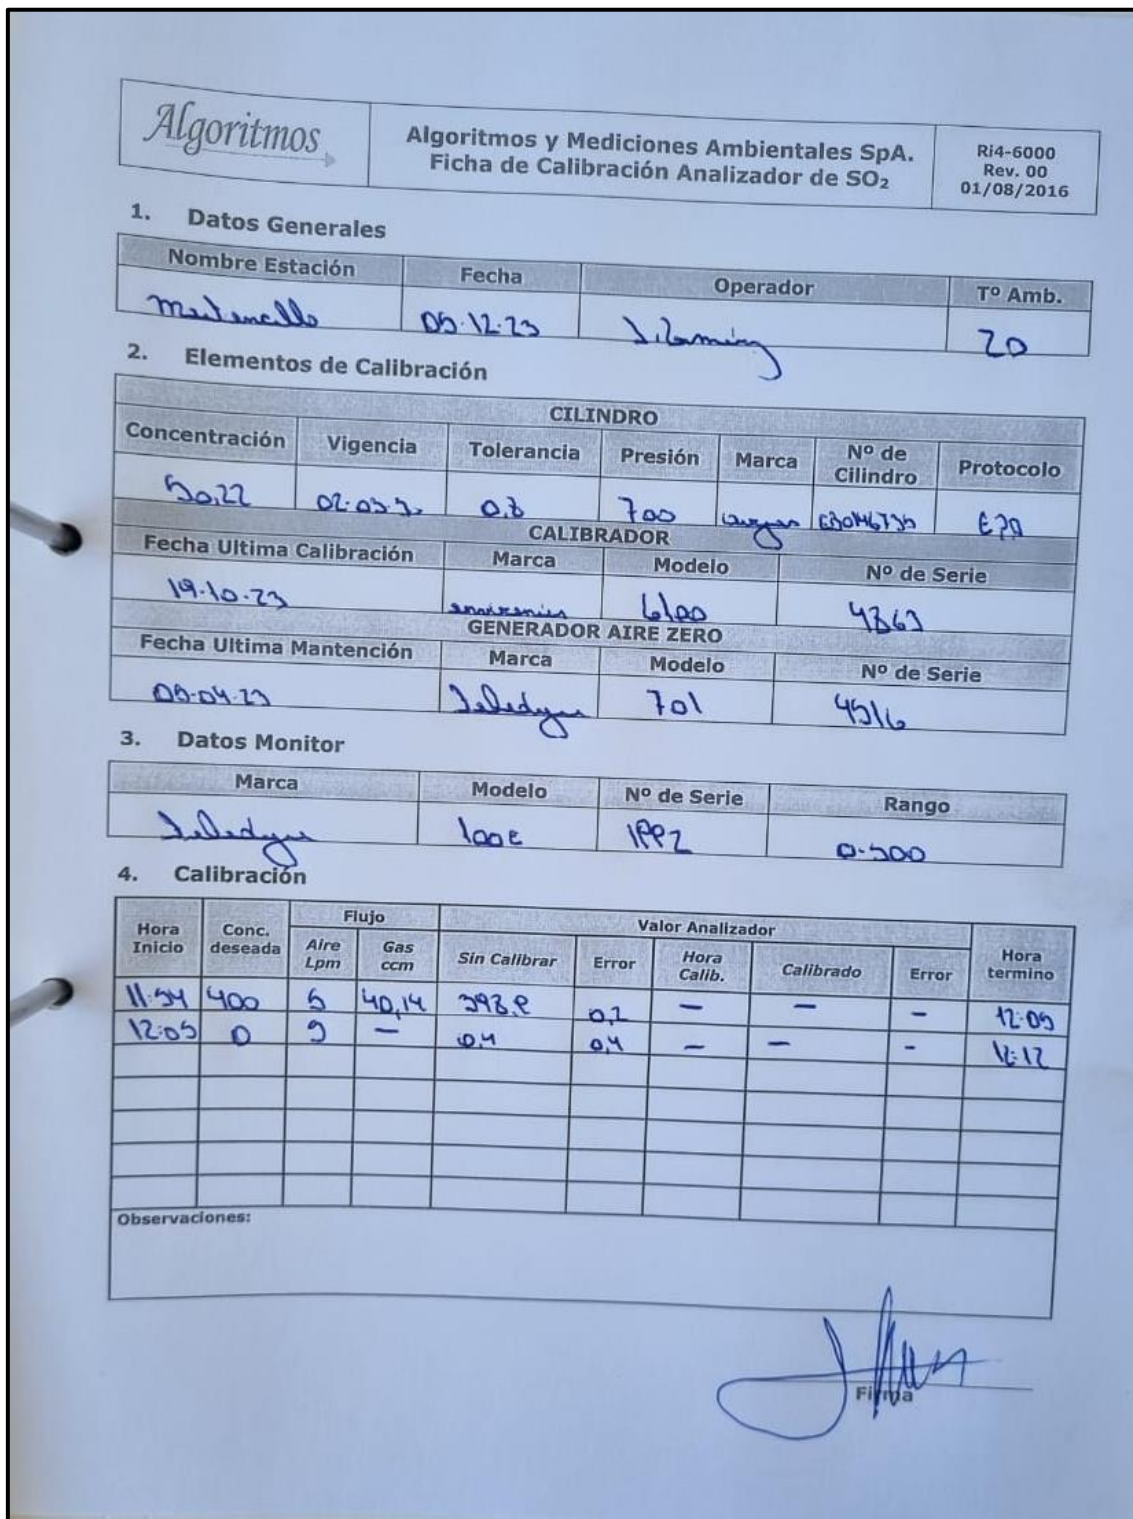 Algoritmos
Algoritmos y Mediciones Ambientales SpA.
Ficha de Calibración Analizador de SO₂
Ri4-6000
Rev. 00
01/08/2016
1. Datos Generales
Nombre Estación Fecha Operador Tº Amb.
05.12.23 20
2. Elementos de Calibración
CILINDRO
Concentración Vigencia Tolerancia Presión Marca Nº de Cilindro Protocolo
50,22 700 EPA
CALIBRADOR
Fecha Ultima Calibración Marca Modelo Nº de Serie
19.10.23 6100
GENERADOR AIRE ZERO
Fecha Ultima Mantención Marca Modelo Nº de Serie
05.04.23 Teledyne 701
3. Datos Monitor
Marca Modelo Nº de Serie Rango
Teledyne 100E 0-500
4. Calibración
Hora Inicio Conc. deseada Flujo Valor Analizador Hora termino
Aire Lpm Gas ccm Sin Calibrar Error Hora Calib. Calibrado Error
11:54 400 5 40,14 0,2 - - - 12:05
12:05 0 5 - 0,4 0,4 - - - 12:12
Observaciones:
Firma